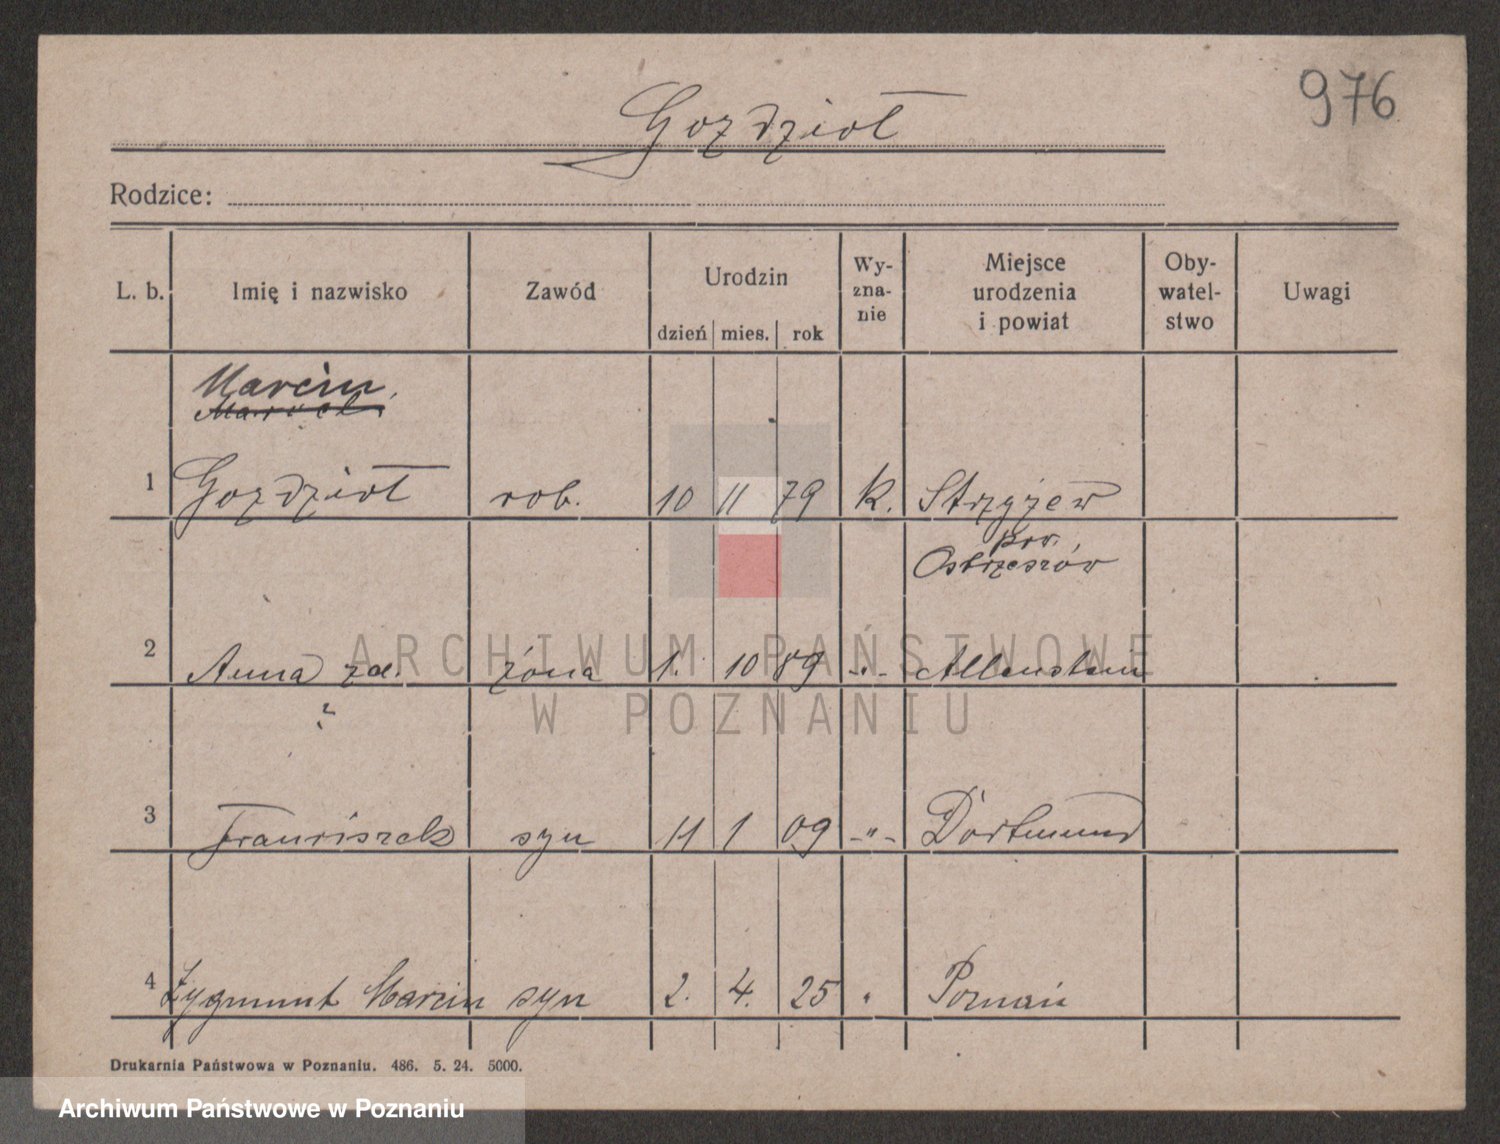 976
Gozdzioł
Rodzice:
L. b. Imię i nazwisko Zawód Urodzin dzień mies. rok Wy-zna-nie Miejsce urodzenia i powiat Oby-watel-stwo Uwagi
Marcin
1 Gozdzioł rob. 10 11 79 k. Strzyżew
pow.
Ostrzeszów
2 Anna zd. żona 1. 10 89 -„- Allenstein
?
3 Franciszek syn 11 1 09 -„- Dortmund
4 Zygmunt Marcin syn 2. 4. 25 „ Poznań
Drukarnia Państwowa w Poznaniu. 486. 5. 24. 5000.
ARCHIWUM PAŃSTWOWE
W POZNANIU
Archiwum Państwowe w Poznaniu